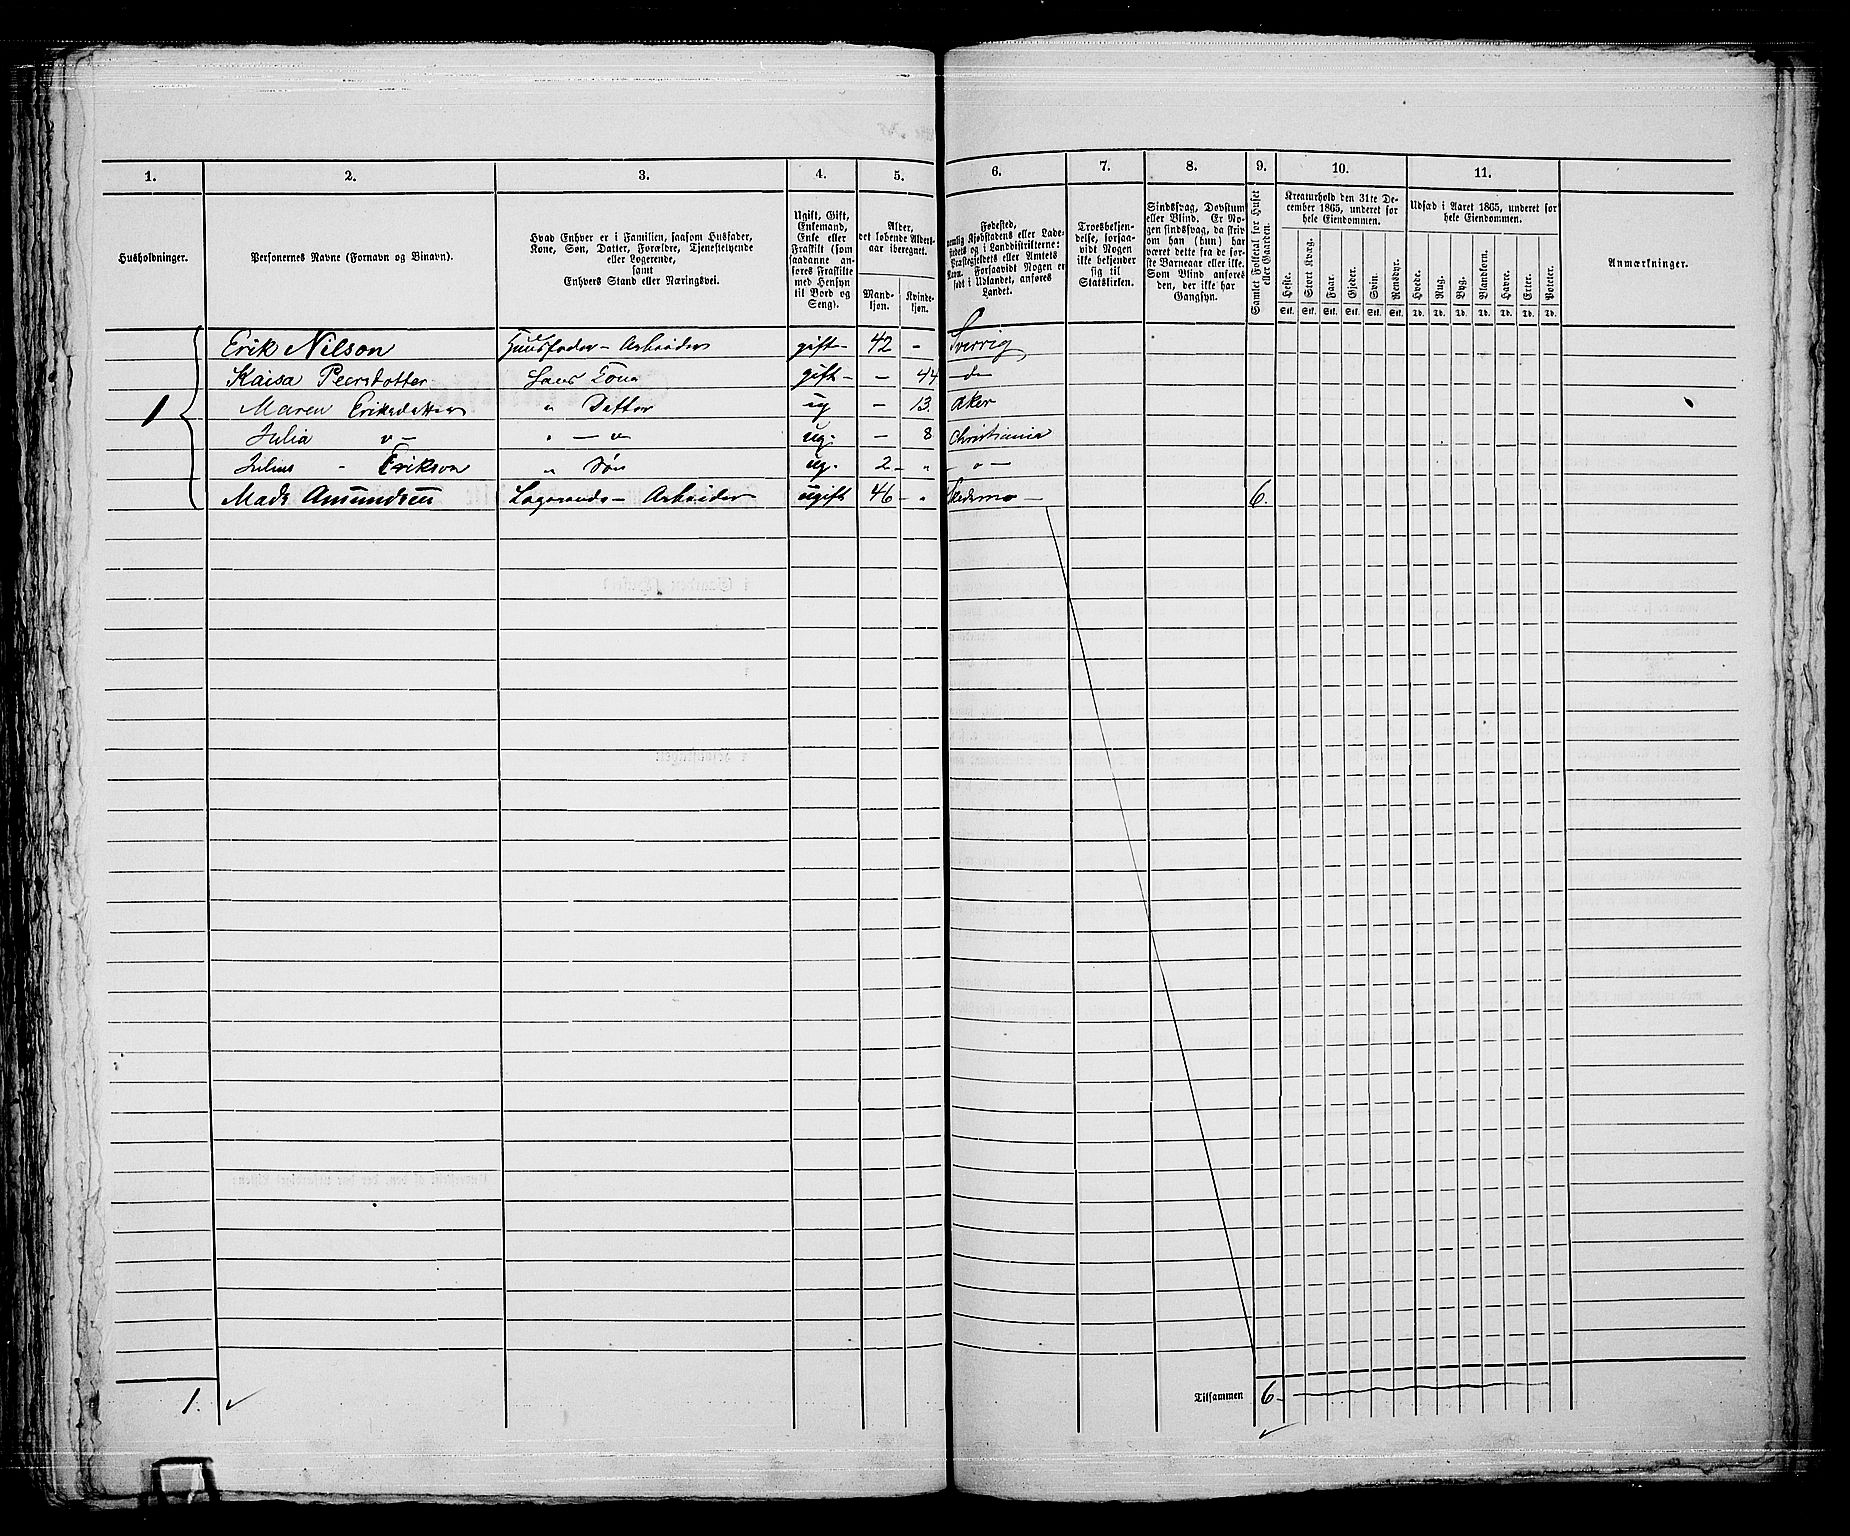 1. 2. 3. 4. 5. 6. 7. 8. 9. 10. 11.
Husholdninger.
Personernes Navne (Fornavn og Binavn).
Hvad Enhver er i Familien, saasom Husfader,
Kone, Søn, Datter, Forældre, Tjenestetyende
eller Logerende,
samt
Enhvers Stand eller Næringsvei.
Ugift, Gift,
Enkemand,
Enke eller
Fraskilt (som
saadanne an-
føres Fraskilte
med Hensyn
til Bord og
Seng).
Alder,
det løbende Alders-
aar iberegnet.
Mand-
kjøn.
Kvinde-
kjøn.
Fødested,
nemlig Kjøbstadens eller Lade-
stedets og i Landdistrikterne:
Præstegjeldets eller Amtets
Navn. Forsaavidt Nogen er
født i Udlandet, anføres
Landet.
Troesbekjen-
delse, forsaa-
vidt Nogen
ikke bekjender
sig til
Statskirken.
Sindssvag, Døvstum
eller Blind. Er No-
gen sindssvag, da skriv
om han (hun) har
været dette fra de før-
ste Barneaar eller ikke.
Som Blind anføres
den, der ikke har
Gangsyn.
Samlet Folketal for Huset
eller Gaarden.
Kreaturhold den 31te De-
cember 1865, underet for
hele Eiendommen.
Heste. Stort Kvæg. Faar. Gjeder. Svin. Rensdyr.
Stk. Stk. Stk. Stk. Stk. Stk.
Udsæd i Aaret 1865, underet for
hele Eiendommen.
Hvede. Rug. Byg. Blandkorn. Havre. Erter. Poteter.
Td. Td. Td. Td. Td. Td. Td.
Anmærkninger.
Erik Nilson Huusfader - Arbeider gift - 42 - Sverrig
Kaisa Peersdotter Hans Kone gift - - 44 - do -
1 Maren Eriksdatter " Datter ug - 13. Aker
Julia " - " - " ug. - 8 Christiania
Julius - Erikson " Søn ug. 2 - " - " -
Mads Amundsen Logerende - Arbeider ugift 46 - " Skedsmo - 6.
1. Tilsammen 6 -